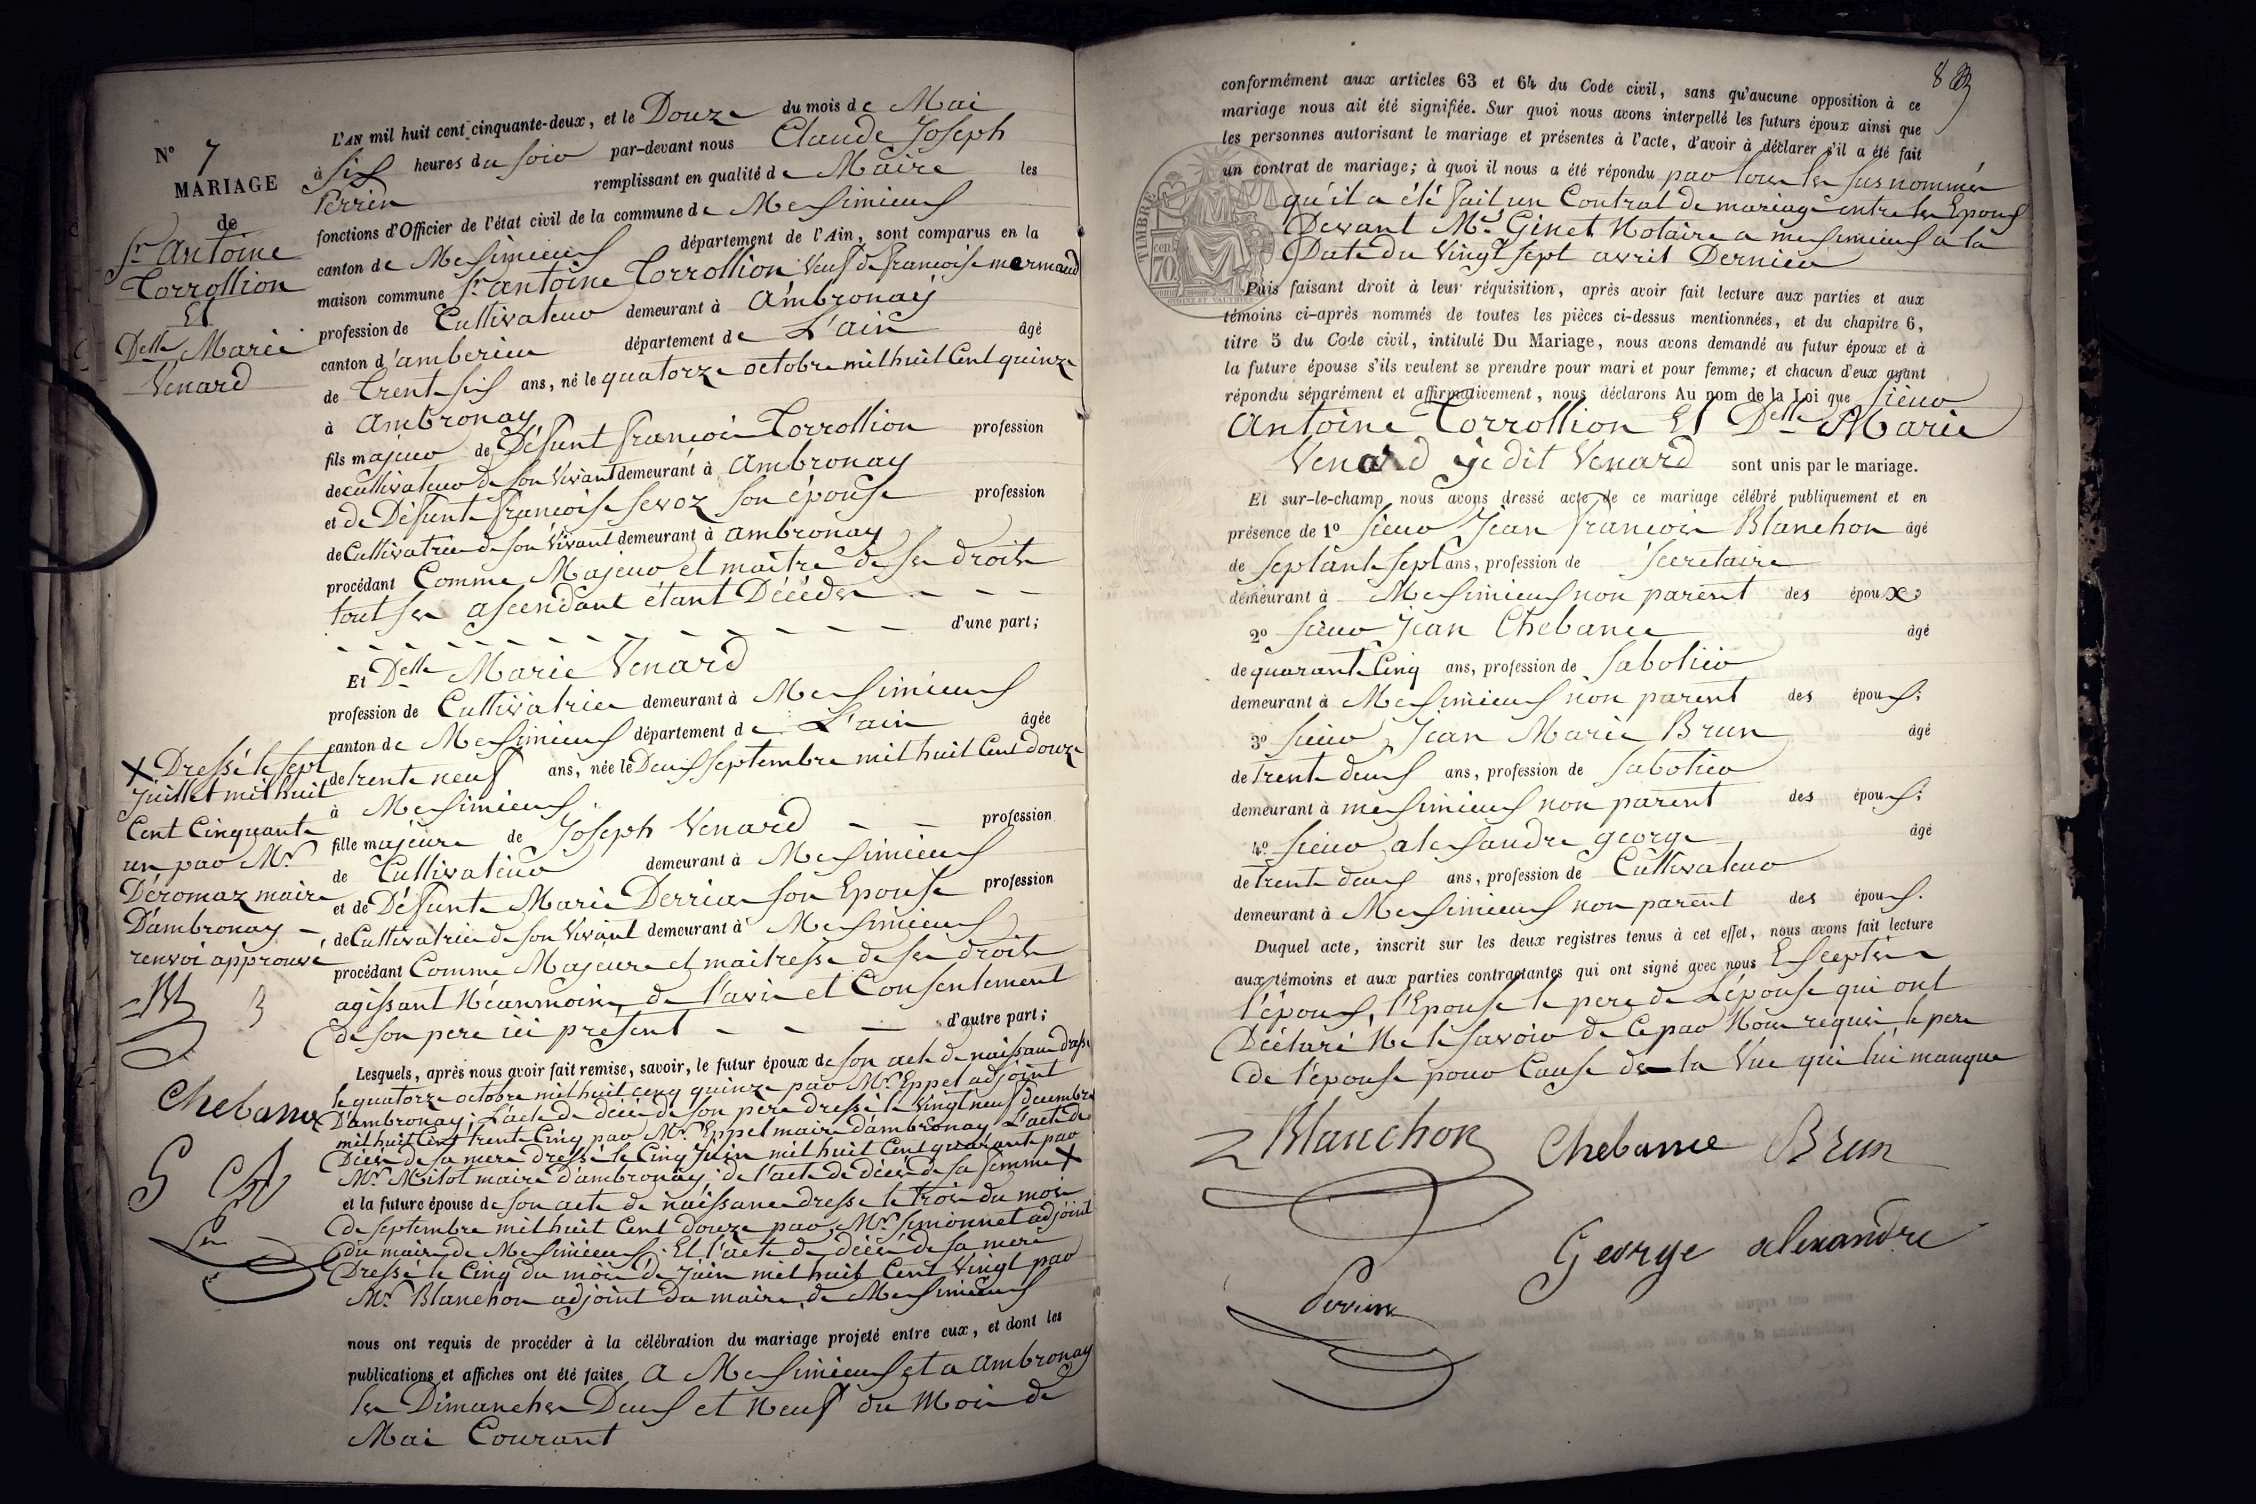 N° 7
MARIAGE
de
Sr Antoine
Torrollion
Et
Delle Marie
Venard
L'AN mil huit cent cinquante-deux, et le Douze du mois de Mai
à Six heures du soir par-devant nous Claude Joseph
Perrin remplissant en qualité de Maire les
fonctions d'Officier de l'état civil de la commune de Meximieux
canton de Meximieux département de l'Ain, sont comparus en la
maison commune Sr Antoine Torrollion Veuf de francoise mermand
profession de Cultivateur demeurant à Ambronay
canton d'amberieu département de L'ain âgé
de trente six ans, né le quatorze octobre mil huit Cent quinze
à Ambronay
fils majeur de Défunt francois Torrollion profession
de cultivateur de son Vivant demeurant à Ambronay
et de Défunte francoise Sevoz son épouse profession
de Cultivatrice de son Vivant demeurant à ambronay
procédant Comme Majeur et maitre de ses droits
tout ses ascendant étant Décédés
d'une part;
Et Delle Marie Venard
profession de Cultivatrice demeurant à Meximieux
canton de Meximieux département de L'ain âgée
de trente neuf ans, née le Deux septembre mil huit Cent douze
à Meximieux
fille majeure de Joseph Venard profession
de Cultivateur demeurant à Meximieux
et de Défunte Marie Derrias son Epouse profession
de Cultivatrice de son Vivant demeurant à Meximieux
procédant Comme Majeure et maitresse de ses droits
agissant Néanmoins de l'avis et Consentement
de son pere ici présent d'autre part;
Lesquels, après nous avoir fait remise, savoir, le futur époux de son acte de naissance dressé
le quatorze octobre mil huit cent quinze par Mr Eppel adjoint
D'ambronay; L'acte de décès de son pere dressé le Vingt neuf decembre
mil huit Cent trente Cinq par Mr Eppel maire d'ambronay L'acte de
Décès de sa mere dressé le Cinq Juin mil huit Cent quarante par
Mr Mitot maire d'ambronay; de l'acte de décès de sa femme X
et la future épouse de son acte de naissance dresse le trois du mois
de septembre mil huit Cent douze par Mr Simonnet adjoint
du maire de Meximieux. Et l'acte de décès de sa mere
Dressé le Cinq du mois de Juin mil huit Cent Vingt par
Mr Blanchon adjoint du maire de Meximieux
nous ont requis de procéder à la célébration du mariage projeté entre eux, et dont les
publications et affiches ont été faites A Meximieux et a Ambronay
les Dimanches Deux et Neuf du Mois de
Mai Courant
X Dressé le sept
Juillet mil huit
Cent Cinquante
un par Mr
Déromaz maire
D'ambronay
renvoi approuvé
Chebance
83
conformément aux articles 63 et 64 du Code civil, sans qu'aucune opposition à ce
mariage nous ait été signifiée. Sur quoi nous avons interpellé les futurs époux ainsi que
les personnes autorisant le mariage et présentes à l'acte, d'avoir à déclarer s'il a été fait
un contrat de mariage; à quoi il nous a été répondu par tous les susnommés
qu'il a été fait un Contrat de mariage entre les Epoux
Devant Mr Ginet Notaire a meximieux a la
Date du Vingt sept avril Dernier
TIMBRE
70 cent
Puis faisant droit à leur réquisition, après avoir fait lecture aux parties et aux
témoins ci-après nommés de toutes les pièces ci-dessus mentionnées, et du chapitre 6,
titre 5 du Code civil, intitulé Du Mariage, nous avons demandé au futur époux et à
la future épouse s'ils veulent se prendre pour mari et pour femme; et chacun d'eux ayant
répondu séparément et affirmativement, nous déclarons Au nom de la Loi que Sieur
Antoine Torrollion Et Delle Marie
Venard je dit Venard sont unis par le mariage.
Et sur-le-champ nous avons dressé acte de ce mariage célébré publiquement et en
présence de 1° Sieur Jean francois Blanchon âgé
de septante sept ans, profession de Secretaire
demeurant à Meximieux non parent des époux;
2° Sieur Jean Chebance âgé
de quarante Cinq ans, profession de Sabotier
demeurant à Meximieux non parent des époux;
3° Sieur Jean Marie Brun âgé
de trente deux ans, profession de Sabotier
demeurant à meximieux non parent des époux;
4° Sieur alexandre george âgé
de trente deux ans, profession de Cultivateur
demeurant à Meximieux non parent des époux.
Duquel acte, inscrit sur les deux registres tenus à cet effet, nous avons fait lecture
aux témoins et aux parties contractantes qui ont signé avec nous Exceptés
l'époux, l'Epouse le pere de L'épouse qui ont
Déclaré Ne le savoir de Ce par Nous requis, le pere
de l'épouse pour Cause de la Vue qui lui manque
Blanchon Chebance Brun
George alexandre
Perrin